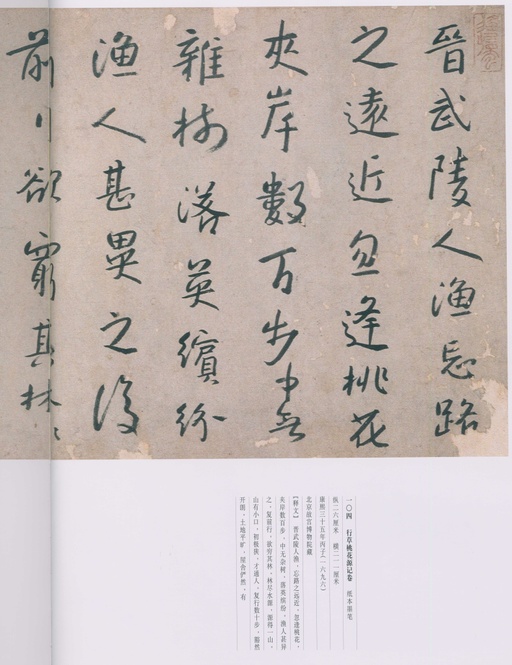 晉武陵人漁忘路
之遠近忽逢桃花
夾岸數百步中無
雜樹落英繽紛
漁人甚異之復
前行欲窮其林〻
一〇四 行草桃花源记卷 纸本墨笔
纵二六厘米 横 厘米
康熙三十五年丙子(一六九六)
北京故宫博物院藏
【释文】 晋武陵人渔,忘路之远近,忽逢桃花,
夹岸数百步,中无杂树,落英缤纷,渔人甚异
之,复前行,欲穷其林,林尽水源,便得一山,
山有小口,初极狭,才通人,复行数十步,豁然
开朗,土地平旷,屋舍俨然,有